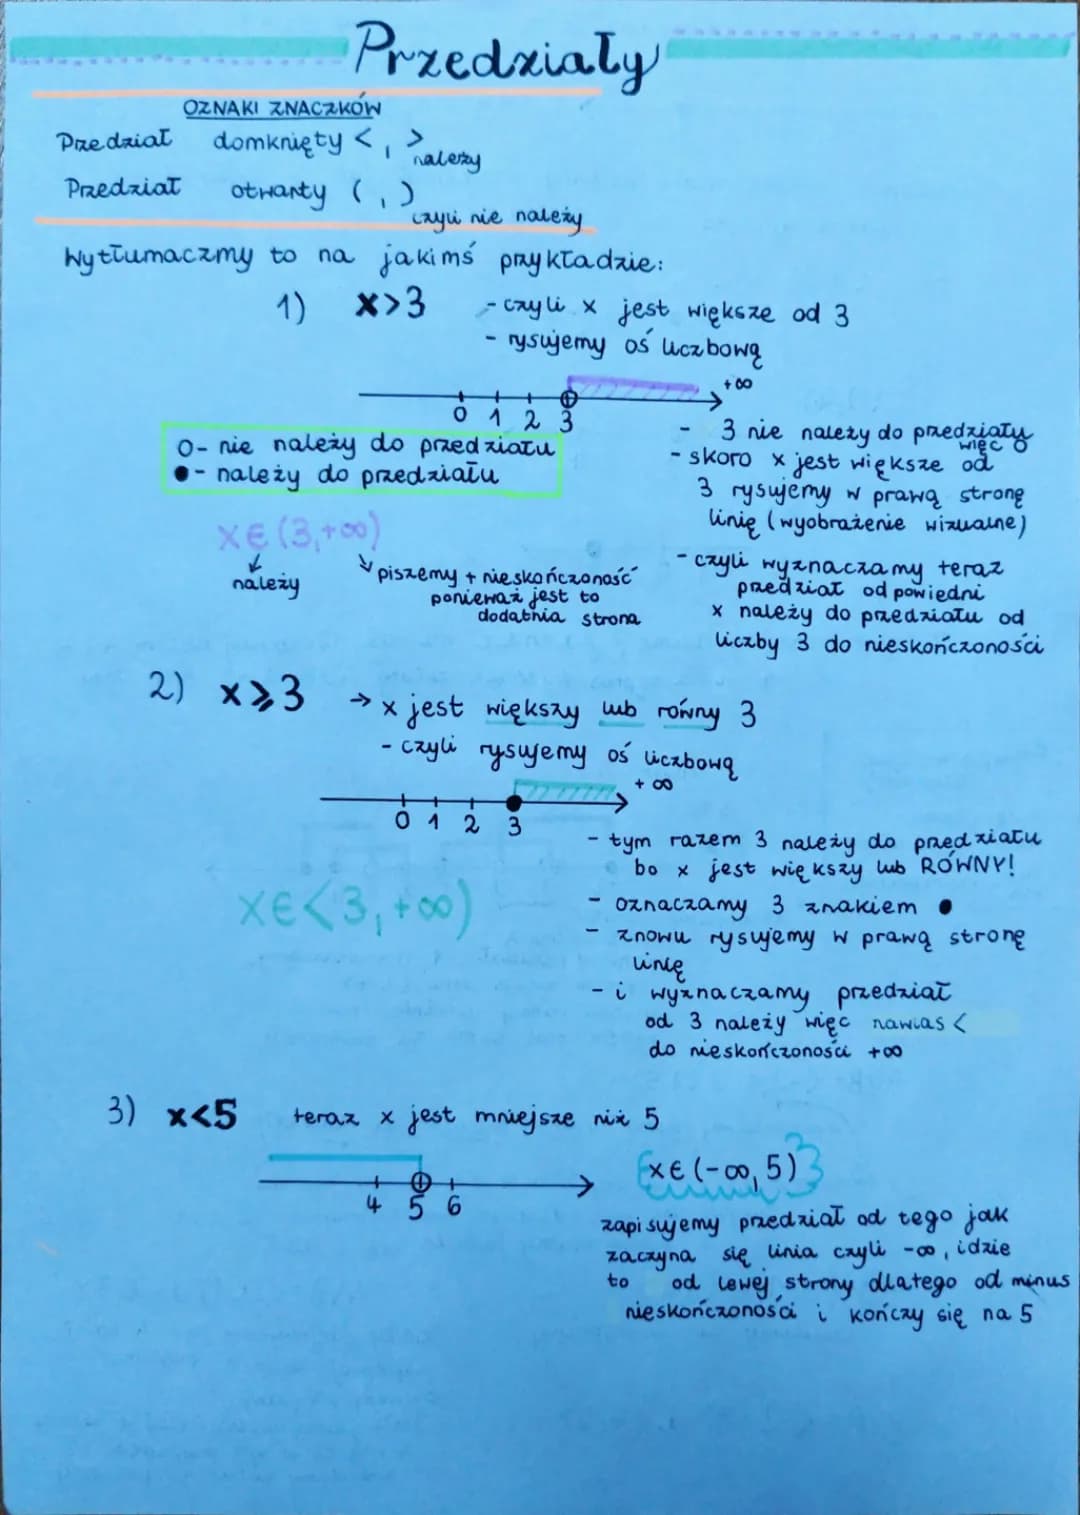 Przedziały
OZNAKI ZNACZKÓW
Przedział domknięty < , > należy
Przedział otwarty ( , ) czyli nie należy
Wytłumaczmy to na jakimś przykładzie:
1) x>3 - czyli x jest większe od 3
- rysujemy oś liczbową
+∞
0 1 2 3
O - nie należy do przedziału
● - należy do przedziału
- 3 nie należy do przedziału więc O
- skoro x jest większe od
3 rysujemy w prawą stronę
linię (wyobrażenie wizualne)
x∈(3,+∞)
należy
piszemy + nieskończoność
ponieważ jest to
dodatnia strona
- czyli wyznaczamy teraz
przedział odpowiedni
x należy do przedziału od
liczby 3 do nieskończoności
2) x⩾3 → x jest większy lub równy 3
- czyli rysujemy oś liczbową
+∞
0 1 2 3
- tym razem 3 należy do przedziału
bo x jest większy lub RÓWNY!
x∈<3,+∞)
- oznaczamy 3 znakiem ●
- znowu rysujemy w prawą stronę
linię
- i wyznaczamy przedział
od 3 należy więc nawias <
do nieskończoności +∞
3) x<5 teraz x jest mniejsze niż 5
4 5 6
x∈(-∞,5)
zapisujemy przedział od tego jak
zaczyna się linia czyli -∞, idzie
to od lewej strony dlatego od minus
nieskończoności i kończy się na 5